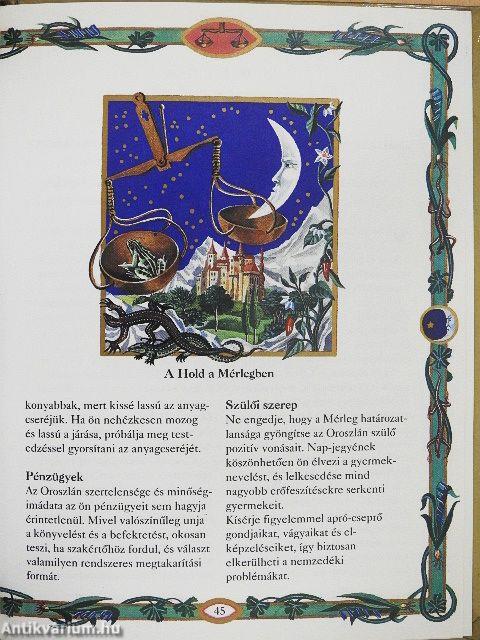 A Hold a Mérlegben
konyabbak, mert kissé lassú az anyag-
cseréjük. Ha ön nehézkesen mozog
és lassú a járása, próbálja meg test-
edzéssel gyorsítani az anyagcseréjét.
Pénzügyek
Az Oroszlán szertelensége és minőség-
imádata az ön pénzügyeit sem hagyja
érintetlenül. Mivel valószínűleg unja
a könyvelést és a befektetést, okosan
teszi, ha szakértőhöz fordul, és választ
valamilyen rendszeres megtakarítási
formát.
Szülői szerep
Ne engedje, hogy a Mérleg határozat-
lansága gyöngítse az Oroszlán szülő
pozitív vonásait. Nap-jegyének
köszönhetően ön élvezi a gyermek-
nevelést, és lelkesedése mind
nagyobb erőfeszítésekre serkenti
gyermekeit.
Kísérje figyelemmel apró-cseprő
gondjaikat, vágyaikat és el-
képzeléseiket, így biztosan
elkerülheti a nemzedéki
problémákat.
45
Antikvarium.hu